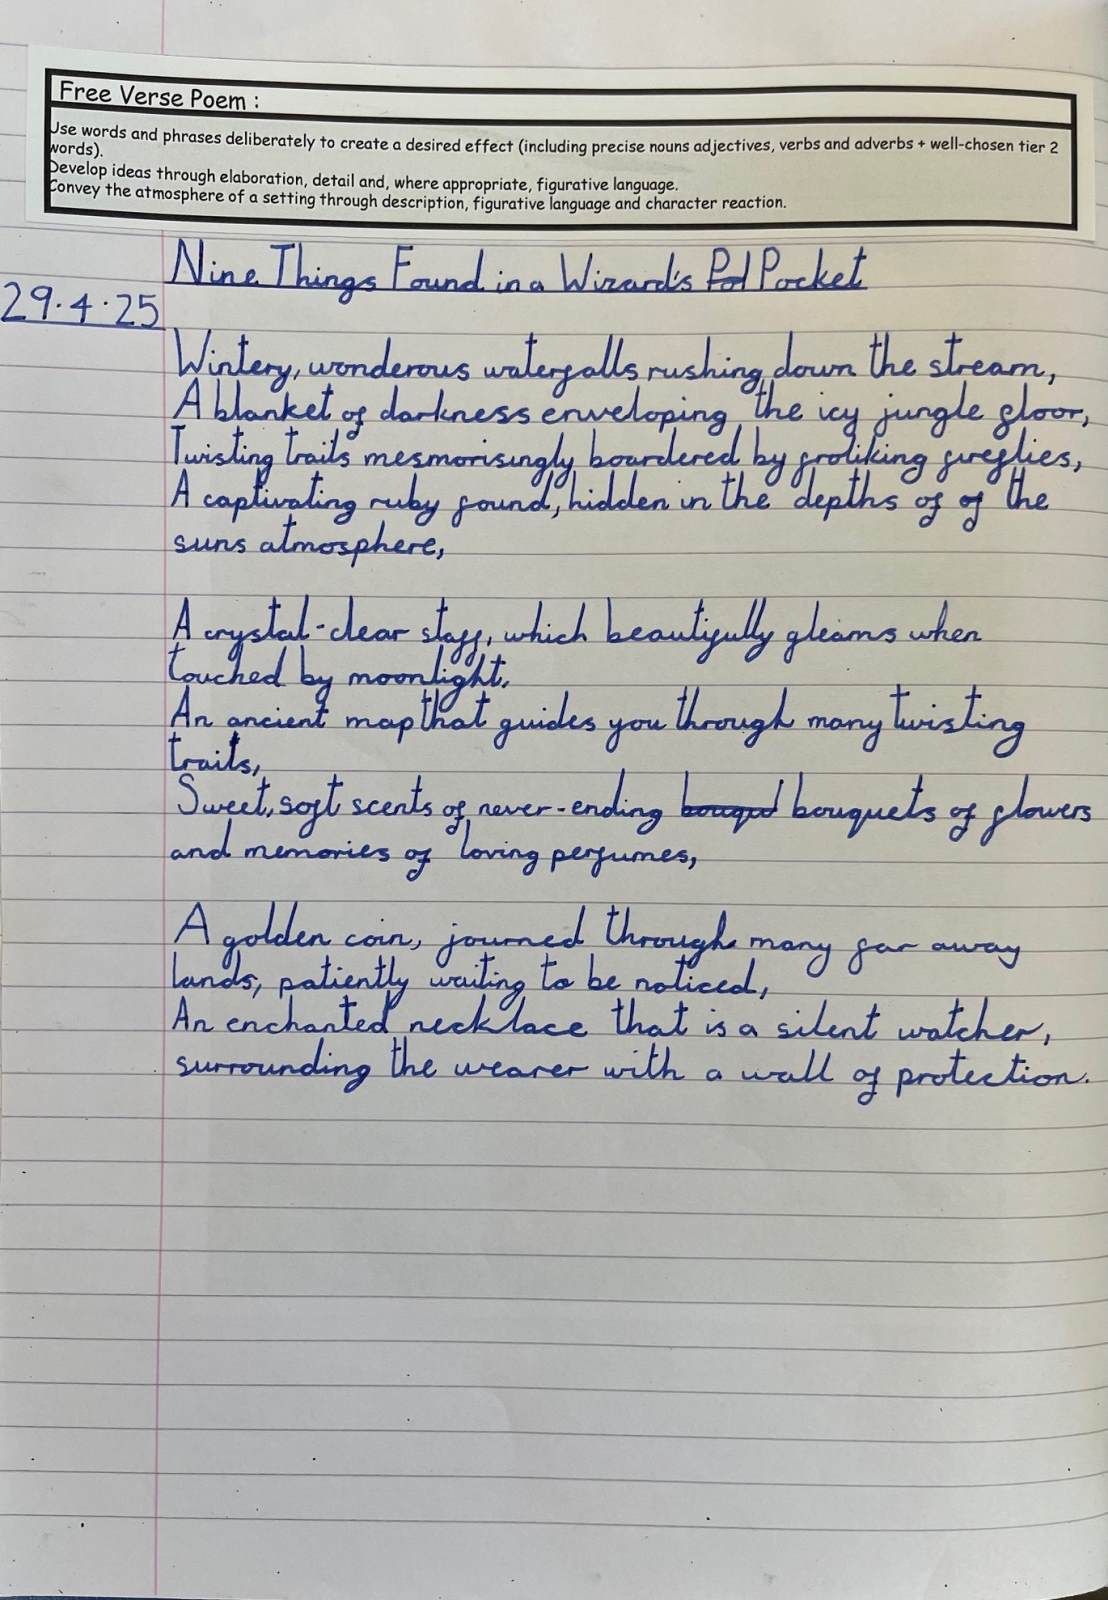 Free Verse Poem :
Use words and phrases deliberately to create a desired effect (including precise nouns adjectives, verbs and adverbs + well-chosen tier 2
words).
Develop ideas through elaboration, detail and, where appropriate, figurative language.
Convey the atmosphere of a setting through description, figurative language and character reaction.
Nine Things Found in a Wizard's Pocket
29.4.25
Wintery, wonderous waterfalls rushing down the stream,
A blanket of darkness enveloping the icy jungle floor,
Twisting trails mesmorisingly boardered by froliking fireflies,
A captivating ruby found, hidden in the depths of of the
suns atmosphere,
A crystal-clear staff, which beautifully gleams when
touched by moonlight,
An ancient map that guides you through many twisting
trails,
Sweet, soft scents of never-ending bouquets of flowers
and memories of loving perfumes,
A golden coin, journed through many far away
lands, patiently waiting to be noticed,
An enchanted necklace that is a silent watcher,
surrounding the wearer with a wall of protection.